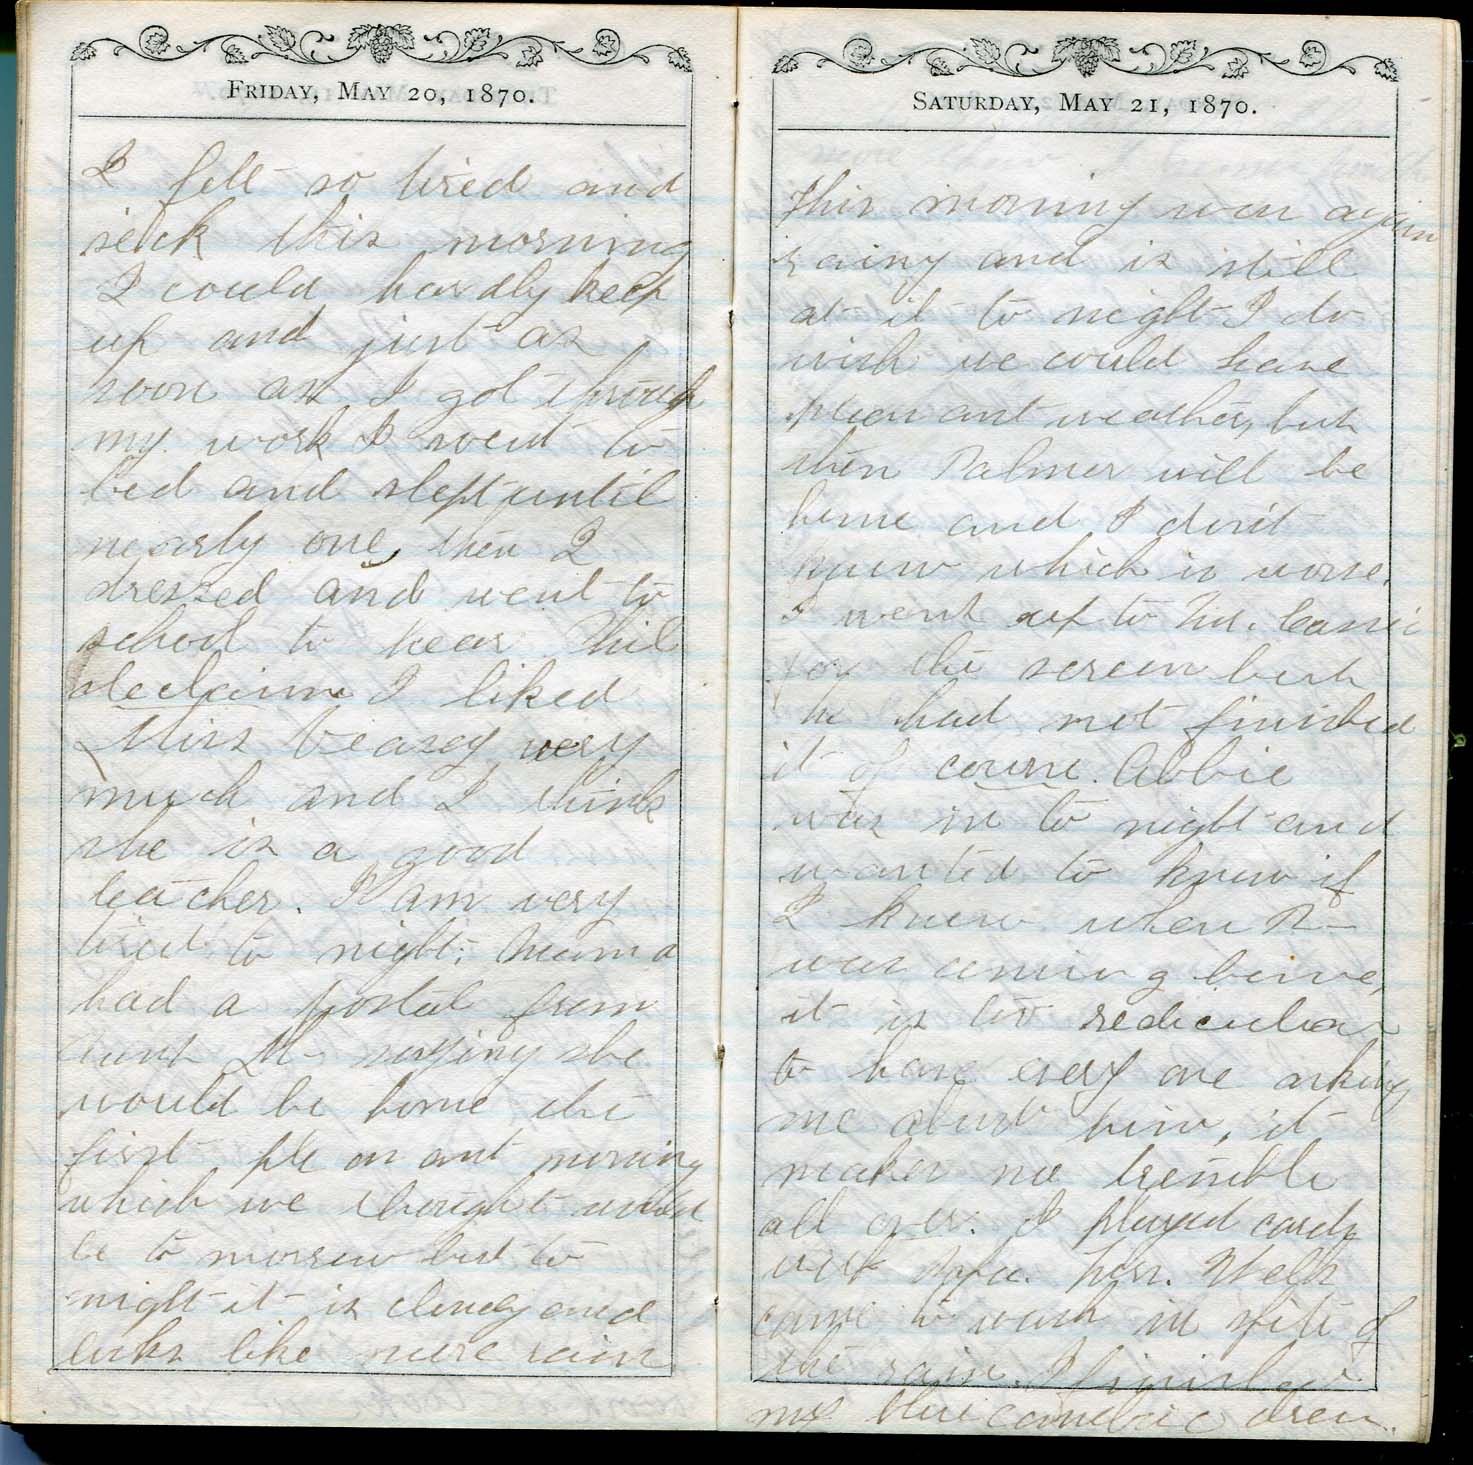 FRIDAY, MAY 20, 1870.
I felt so tired and
sick this morning
I could hardly keep
up and just as
soon as I got through
my work I went to
bed and slept until
nearly one, then I
dressed and went to
school to hear Phil
declaim I liked
Miss Veasey very
much and I think
she is a good
teacher. I am very
tired to night; Mama
had a postal from
Aunt M- saying she
would be home the
first pleasant morning
which we thought would
be to morrow but to
night it is cloudy and
looks like more rain
SATURDAY, MAY 21, 1870.
This morning was again
rainy and is still
at it to night I do
wish we could have
pleasant weather, but
then Palmer will be
home and I don't
know which is worse.
I went up to Mr.
for the screen but
he had not finished
it of course. Abbie
was in to night and
wanted to know if
I knew when P-
was coming home,
it is too rediculous
to have every one asking
me about him, it
makes me tremble
all over. I played cards
with Mrs. Welch
came to wash in spite of
the rain. I finished
my blue cambric dress.